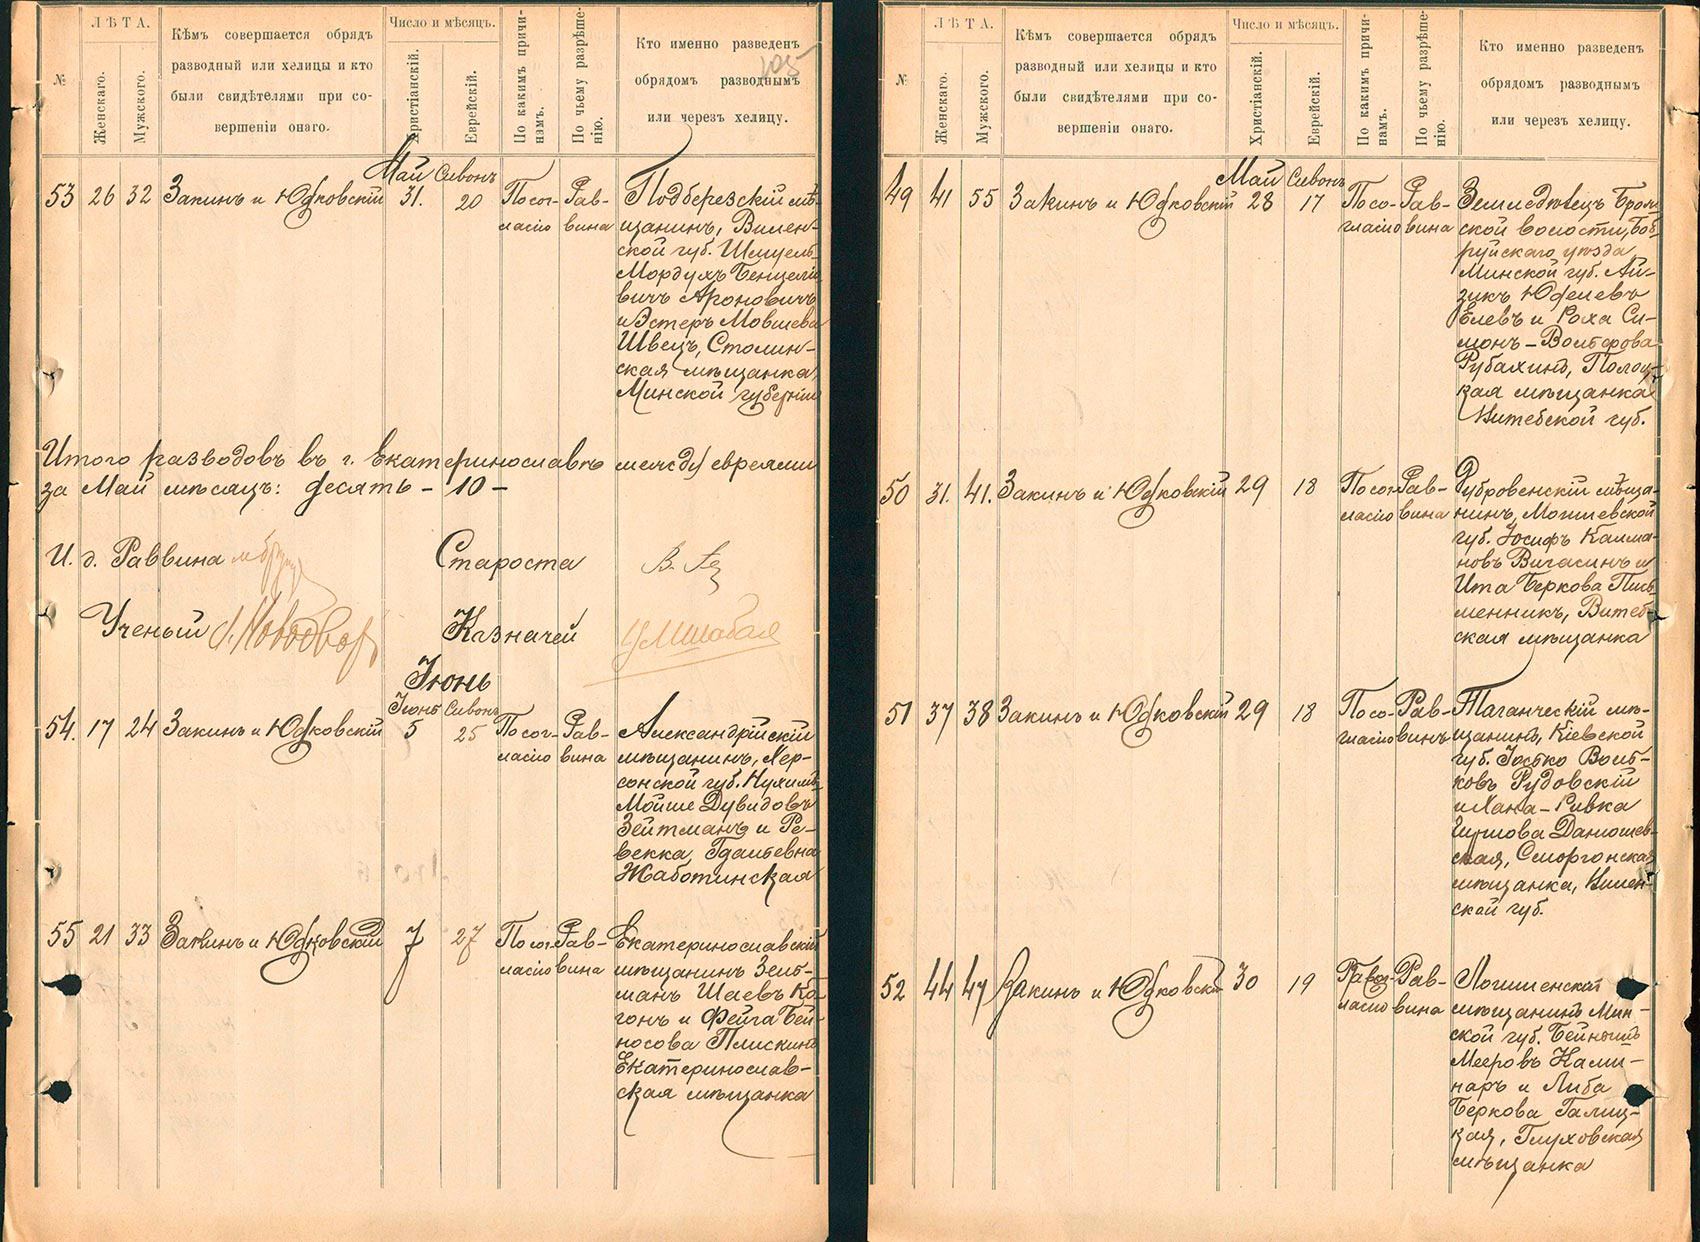 105
№
ЛѢТА.
Женскаго.
Мужского.
Кѣмъ совершается обрядъ
разводный или хелицы и кто
были свидѣтелями при со-
вершеніи онаго.
Число и мѣсяцъ.
Христіанскій.
Еврейскій.
По какимъ причи-
намъ.
По чьему разрѣше-
нію.
Кто именно разведенъ
обрядомъ разводнымъ
или черезъ хелицу.
Май Сивонъ
53 26 32 Закинъ и Юдковскій 31. 20 По сог-
ласію
Рав-
вина
Подберезскій мѣ-
щанинъ, Вилен-
ской губ. Шмуель
Мордухъ Бенцеліо-
вичъ Ароновичъ
и Эстеръ Мовшева
Швецъ, Столин-
ская мѣщанка,
Минской губерніи
Итого разводовъ въ г. Екатеринославѣ между евреями
за Май мѣсяцъ: десять – 10 –
И. д. Раввина
Староста
Ученый
Казначей
Іюнь
Іюнь Сивонъ
54. 17 24 Закинъ и Юдковскій 5 25 По сог-
ласію
Рав-
вина
Александрійскій
мѣщанинъ, Хер-
сонской губ. Нухимъ
Мойше Дувидовъ
Зейтманъ и Ре-
векка Гдальевна
Жаботинская
55 21 33 Закинъ и Юдковскій 7 27 По сог-
ласію
Рав-
вина
Екатеринославскій
мѣщанинъ Зель-
манъ Шаевъ Ка-
гонъ и Фейга Бей-
носова Плискинъ
Екатеринослав-
ская мѣщанка
№
ЛѢТА.
Женскаго.
Мужского.
Кѣмъ совершается обрядъ
разводный или хелицы и кто
были свидѣтелями при со-
вершеніи онаго.
Число и мѣсяцъ.
Христіанскій.
Еврейскій.
По какимъ причи-
намъ.
По чьему разрѣше-
нію.
Кто именно разведенъ
обрядомъ разводнымъ
или черезъ хелицу.
Май Сивонъ
49 41 55 Закинъ и Юдковскій 28 17 По со-
гласію
Рав-
вина
Земледѣлецъ
ской волости, Боб-
руйскаго уѣзда
Минской губ. Ай-
зикъ Юделевъ
Елевъ и Роха Си-
монъ – Вольфова
Рубахинъ, Полоц-
кая мѣщанка
Витебской губ.
50 31. 41. Закинъ и Юдковскій 29 18 По сог-
ласію
Рав-
вина
Дубровенскій мѣща-
нинъ, Могилевской
губ. Іосифъ Калма-
новъ Вигасинъ и
Ита Беркова Пись-
менникъ, Витеб-
ская мѣщанка
51 37 38 Закинъ и Юдковскій 29 18 По со-
гласію
Рав-
винъ
Таганческій мѣ-
щанинъ, Кіевской
губ. Іосько Воль-
ковъ Рудовскій
и Хана – Ривка
Гиршова Данюшев-
ская, Сморгонская
мѣщанка, Вилен-
ской губ.
52 44 47 Закинъ и Юдковскій 30 19
ласію
Рав-
вина
Логишенскій
мѣщанинъ Мин-
ской губ. Бейнышъ
Мееровъ Калин-
наръ и Либа
Беркова Галиц-
кая, Глуховская
мѣщанка